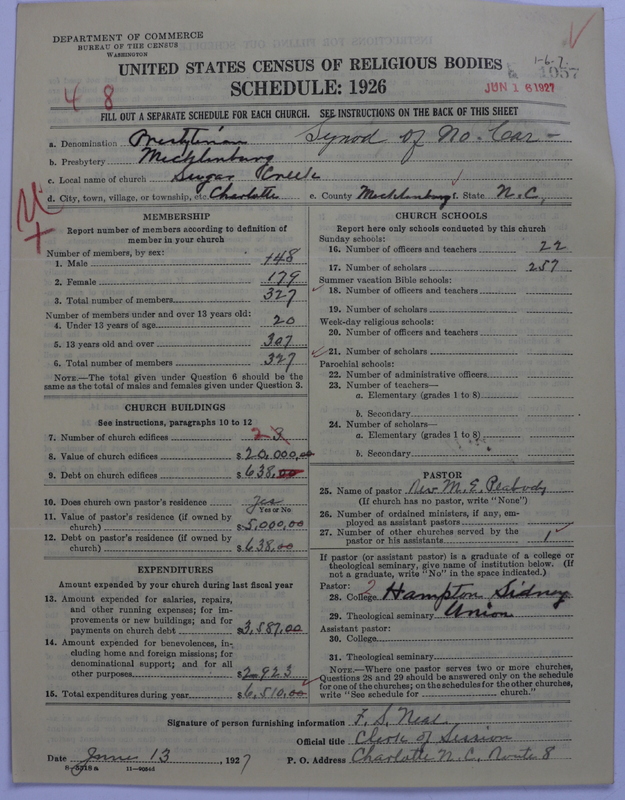 DEPARTMENT OF COMMERCE
BUREAU OF THE CENSUS
WASHINGTON
UNITED STATES CENSUS OF RELIGIOUS BODIES
1-6-7.
1057
SCHEDULE: 1926
JUN 16 1927
4 8
FILL OUT A SEPARATE SCHEDULE FOR EACH CHURCH. SEE INSTRUCTIONS ON THE BACK OF THIS SHEET
a. Denomination Presbyterian Synod of No. Car-
b. Presbytery Mecklenburg
c. Local name of church Sugar Creek
d. City, town, village, or township, etc. Charlotte e. County Mecklenburg f. State N.C.
MEMBERSHIP
Report number of members according to definition of
member in your church
Number of members, by sex:
1. Male 148
2. Female 179
3. Total number of members 327
Number of members under and over 13 years old:
4. Under 13 years of age 20
5. 13 years old and over 307
6. Total number of members 327
NOTE.—The total given under Question 6 should be the
same as the total of males and females given under Question 3.
CHURCH BUILDINGS
See instructions, paragraphs 10 to 12
7. Number of church edifices 2 3
8. Value of church edifices $20,000,00
9. Debt on church edifices $638.00
10. Does church own pastor's residence Yes
Yes or No
11. Value of pastor's residence (if owned by
church) $5,000,00
12. Debt on pastor's residence (if owned by
church) $638.00
EXPENDITURES
Amount expended by your church during last fiscal year
13. Amount expended for salaries, repairs,
and other running expenses; for im-
provements or new buildings; and for
payments on church debt $3,587,00
14. Amount expended for benevolences, in-
cluding home and foreign missions; for
denominational support; and for all
other purposes $2,923
15. Total expenditures during year $6,510,00
CHURCH SCHOOLS
Report here only schools conducted by this church
Sunday schools:
16. Number of officers and teachers 22
17. Number of scholars 257
Summer vacation Bible schools:
18. Number of officers and teachers
19. Number of scholars
Week-day religious schools:
20. Number of officers and teachers
21. Number of scholars
Parochial schools:
22. Number of administrative officers
23. Number of teachers—
a. Elementary (grades 1 to 8)
b. Secondary
24. Number of scholars—
a. Elementary (grades 1 to 8)
b. Secondary
PASTOR
25. Name of pastor Rev M. E. Peabody
(If church has no pastor, write "None")
26. Number of ordained ministers, if any, em-
ployed as assistant pastors
27. Number of other churches served by the
pastor or his assistants 1
If pastor (or assistant pastor) is a graduate of a college or
theological seminary, give name of institution below. (If
not a graduate, write "No" in the space indicated.)
Pastor:
28. College Hampton Sidney
29. Theological seminary Union
Assistant pastor:
30. College
31. Theological seminary
NOTE.—Where one pastor serves two or more churches,
Questions 28 and 29 should be answered only on the schedule
for one of the churches; on the schedules for the other churches,
write "See schedule for church."
Signature of person furnishing information F. S. Neal
Official title Clerk of Session
Date June 13, 1927 P. O. Address Charlotte N.C. Route 8
11-9084d